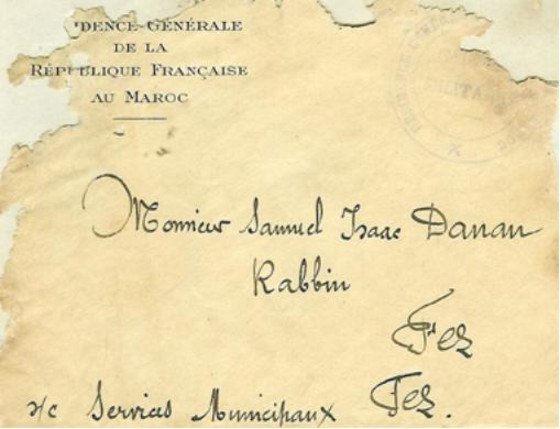 DENCE GÉNÉRALE
DE LA
RÉPUBLIQUE FRANÇAISE
AU MAROC
Monsieur Samuel Isaac Danan
Rabbin
Fez
s/c Services Municipaux Fez.